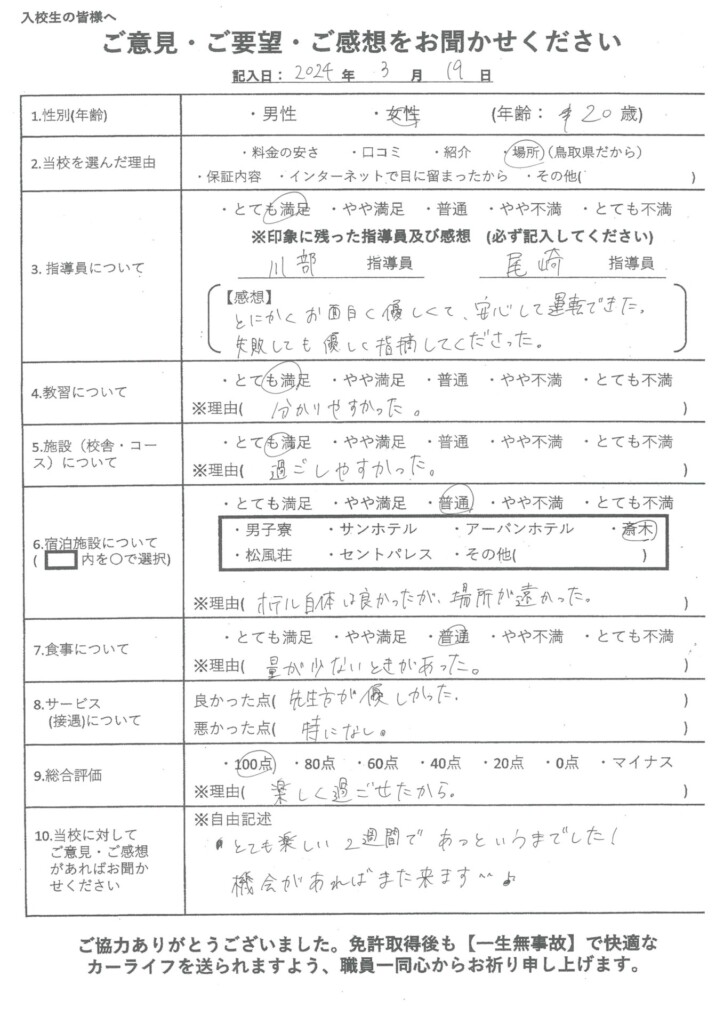 入校生の皆様へ
ご意見・ご要望・ご感想をお聞かせください
記入日： 2024 年 3 月 19 日
1.性別(年齢) ・男性 ・女性 (年齢： 20 歳)
2.当校を選んだ理由 ・料金の安さ ・口コミ ・紹介 ・場所(鳥取県だから)
・保証内容 ・インターネットで目に留まったから ・その他( )
3. 指導員について ・とても満足 ・やや満足 ・普通 ・やや不満 ・とても不満
※印象に残った指導員及び感想 (必ず記入してください)
川部 指導員 尾崎 指導員
【感想】
とにかくお面白く優しくて、安心して運転できた。
失敗しても優しく指摘してくださった。
4.教習について ・とても満足 ・やや満足 ・普通 ・やや不満 ・とても不満
※理由( 分かりやすかった。 )
5.施設（校舎・コース）について ・とても満足 ・やや満足 ・普通 ・やや不満 ・とても不満
※理由( 過ごしやすかった。 )
6.宿泊施設について ・とても満足 ・やや満足 ・普通 ・やや不満 ・とても不満
( 内を〇で選択) ・男子寮 ・サンホテル ・アーバンホテル ・斎木
・松風荘 ・セントパレス ・その他( )
※理由( ホテル自体は良かったが、場所が遠かった。 )
7.食事について ・とても満足 ・やや満足 ・普通 ・やや不満 ・とても不満
※理由( 量が少ないときがあった。 )
8.サービス 良かった点( 先生方が優しかった. )
(接遇)について 悪かった点( 特になし。 )
9.総合評価 ・100点 ・80点 ・60点 ・40点 ・20点 ・0点 ・マイナス
※理由( 楽しく過ごせたから。 )
10.当校に対して ※自由記述
ご意見・ご感想 とても楽しい2週間であっというまでした!
があればお聞か 機会があればまた来ます〜♪
せください
ご協力ありがとうございました。免許取得後も【一生無事故】で快適な
カーライフを送られますよう、職員一同心からお祈り申し上げます。